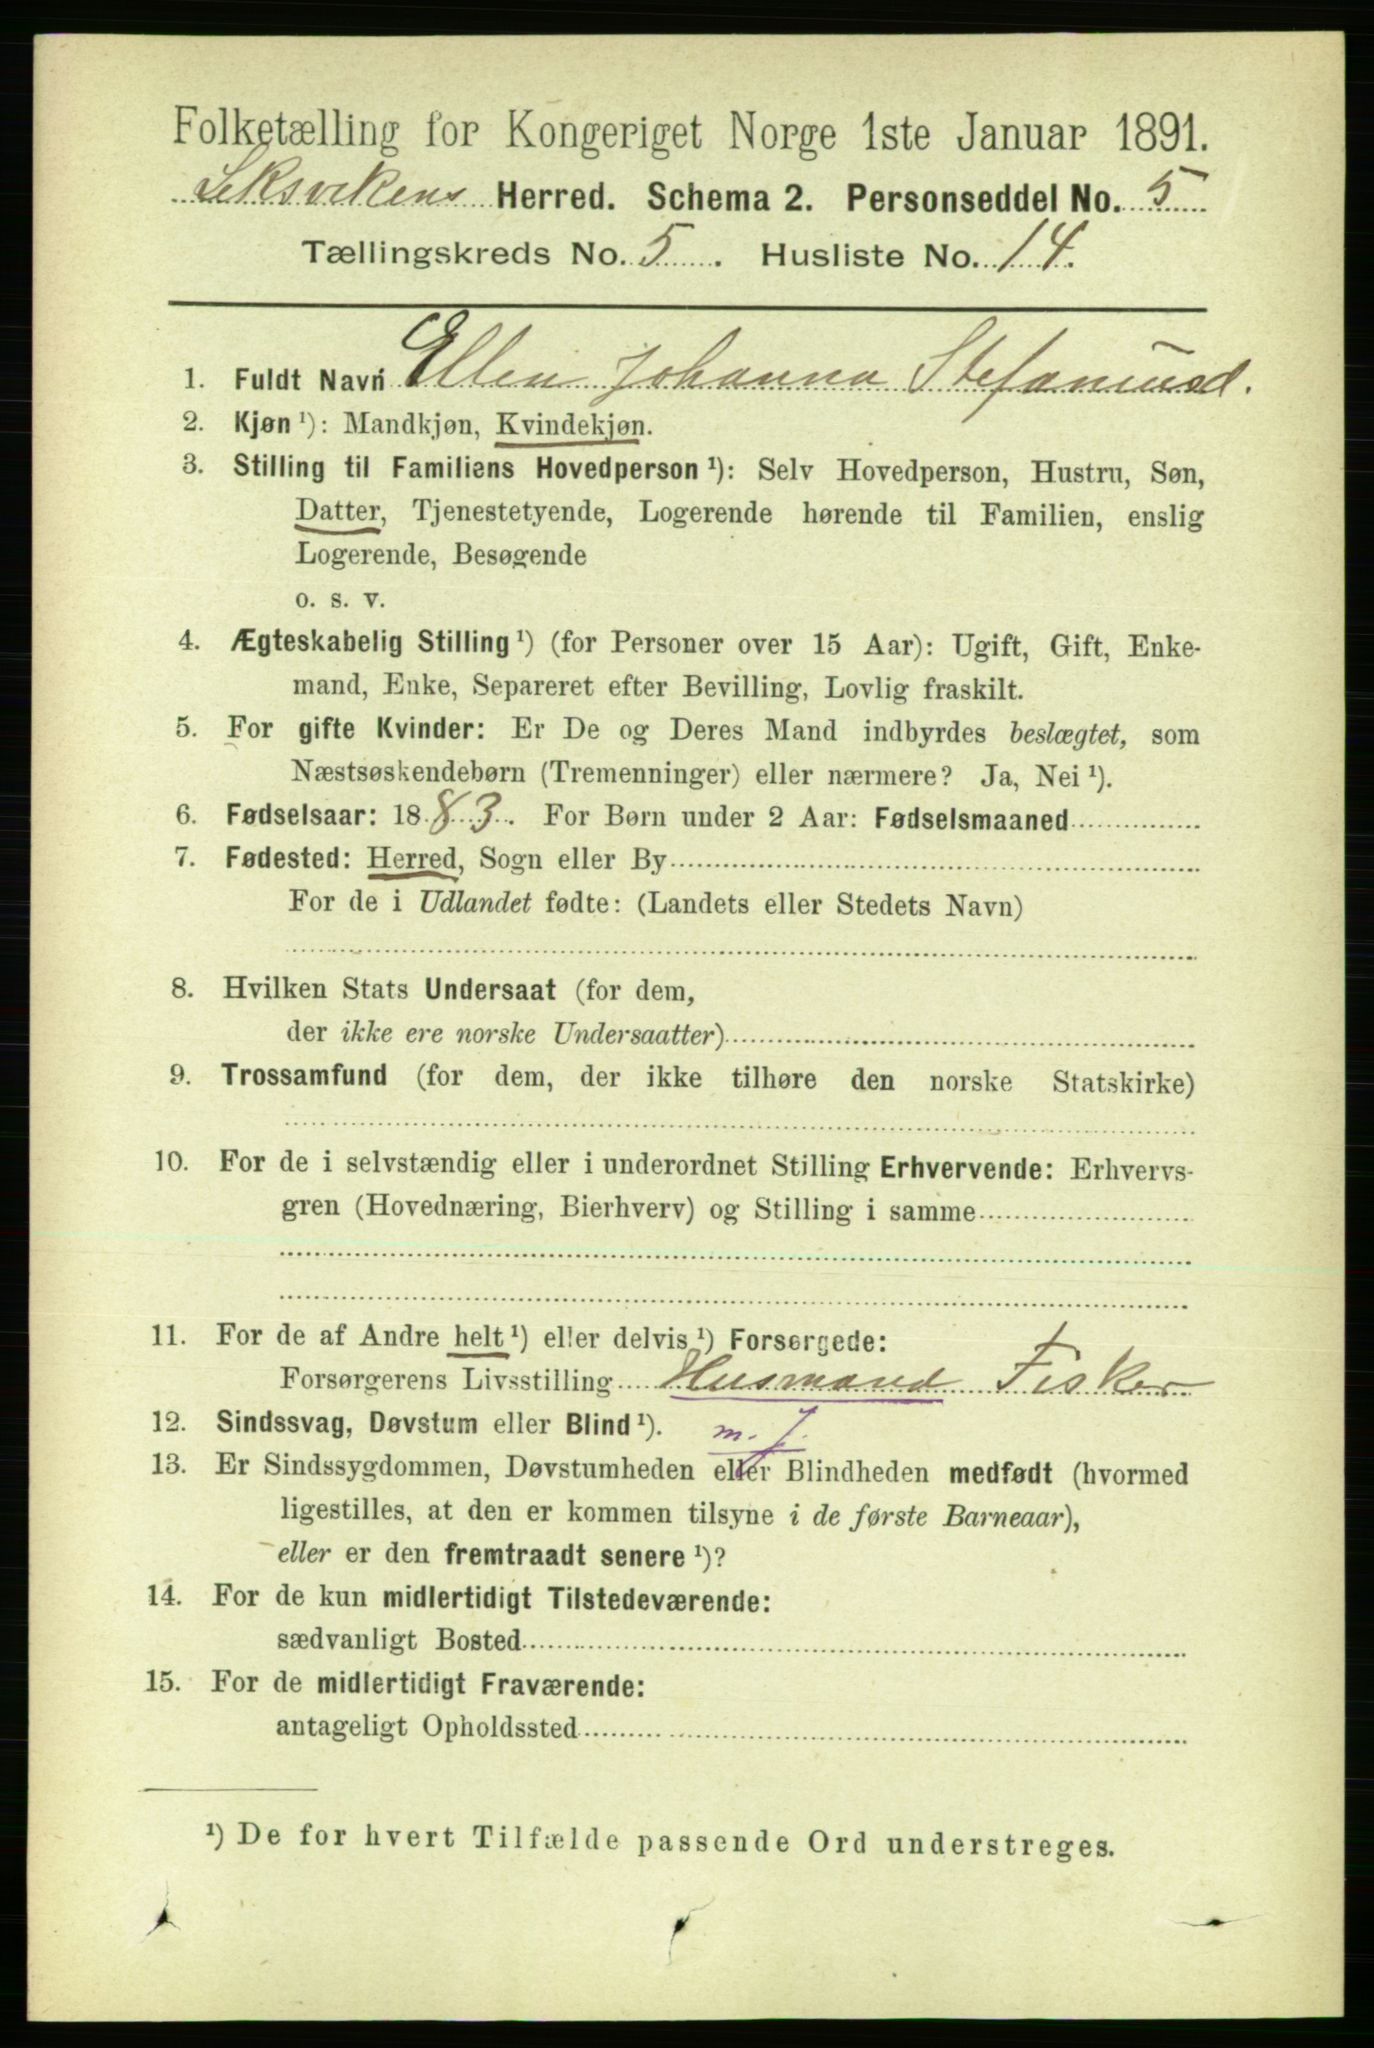 Folketælling for Kongeriget Norge 1ste Januar 1891.
Leksvikens Herred. Schema 2. Personseddel No. 5
Tællingskreds No. 5. Husliste No. 14.
1. Fuldt Navn Ellen Johanna Stefaniusd.
2. Kjøn ¹): Mandkjøn, Kvindekjøn.
3. Stilling til Familiens Hovedperson ¹): Selv Hovedperson, Hustru, Søn,
Datter, Tjenestetyende, Logerende hørende til Familien, enslig
Logerende, Besøgende
o. s. v.
4. Ægteskabelig Stilling ¹) (for Personer over 15 Aar): Ugift, Gift, Enke-
mand, Enke, Separeret efter Bevilling, Lovlig fraskilt.
5. For gifte Kvinder: Er De og Deres Mand indbyrdes beslægtet, som
Næstsøskendebørn (Tremenninger) eller nærmere? Ja, Nei ¹).
6. Fødselsaar: 1883. For Børn under 2 Aar: Fødselsmaaned
7. Fødested: Herred, Sogn eller By
For de i Udlandet fødte: (Landets eller Stedets Navn)
8. Hvilken Stats Undersaat (for dem,
der ikke ere norske Undersaatter)
9. Trossamfund (for dem, der ikke tilhøre den norske Statskirke)
10. For de i selvstændig eller i underordnet Stilling Erhvervende: Erhvervs-
gren (Hovednæring, Bierhverv) og Stilling i samme
11. For de af Andre helt ¹) eller delvis ¹) Forsørgede:
Forsørgerens Livsstilling Husmand Fisker
12. Sindssvag, Døvstum eller Blind ¹). m. J.
13. Er Sindssygdommen, Døvstumheden eller Blindheden medfødt (hvormed
ligestilles, at den er kommen tilsyne i de første Barneaar),
eller er den fremtraadt senere ¹)?
14. For de kun midlertidigt Tilstedeværende:
sædvanligt Bosted
15. For de midlertidigt Fraværende:
antageligt Opholdssted
¹) De for hvert Tilfælde passende Ord understreges.